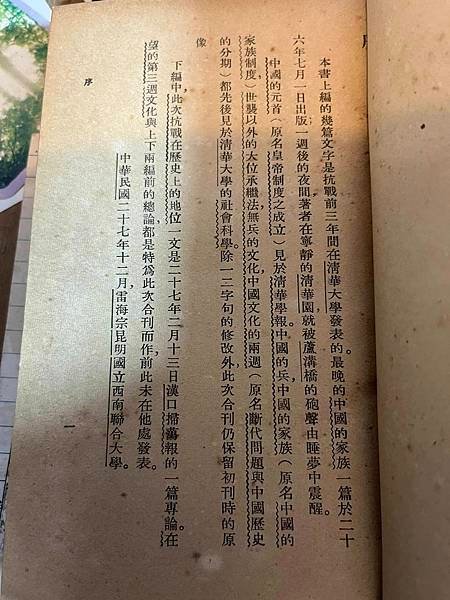 序
本書上編的幾篇文字是抗戰前三年間在淸華大學發表的。最晚的中國的家族一篇於二十
六年七月一日出版一週後的夜間，著者在寧靜的淸華園，就被蘆溝橋的砲聲由睡夢中震醒。
中國的元首（原名皇帝制度之成立）見於淸華學報。中國的兵，中國的家族（原名中國的
家族制度）世襲以外的大位承繼法，無兵的文化，中國文化的兩週（原名斷代問題與中國歷史
的分期）都先後見於淸華大學的社會科學。除一二字句的修改外，此次合刊仍保留初刊時的原
像
下編中，此次抗戰在歷史上的地位一文是二十七年二月十三日漢口掃蕩報的一篇專論。在
望的第三週文化與上下兩編前的總論，都是特爲此次合刊而作，前此未在他處發表。
中華民國二十七年十二月，雷海宗，昆明國立西南聯合大學。
序
一